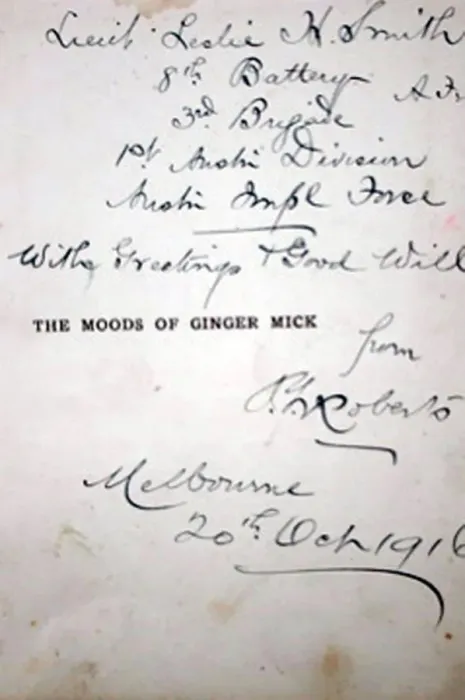 Lieut Leslie H. Smith
8th Battery A.F.
3rd Brigade
1st Austn Division
Austn Impl Force
With Greetings & Good Will
THE MOODS OF GINGER MICK
from
Roberts
Melbourne
20th Oct 1916